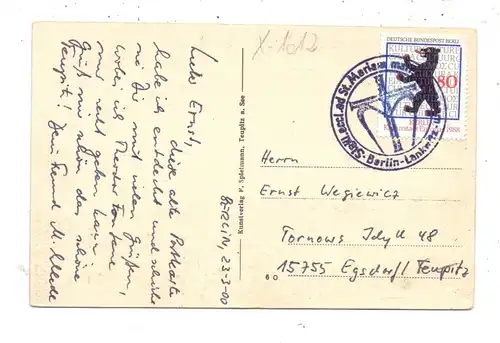 X-1012
Lieber Ernst,
diese alte Postkarte
habe ich entdeckt und schicke
sie Dir mit vielen Grüßen,
wobei ich Theodor Fontane
nur recht geben kann
Grüß mir schön das schöne
Teupitz! Dein Freund M.
BERLIN, 23-3-00
Kunstverlag F. Spielmann, Teupitz a. See
60
DEUTSCHE BUNDESPOST BERLIN
80
Kulturstadt Europas 1988
eccl. ad St. Mariam
Berlin-Lankwitz
Herrn
Ernst Wegiewicz
Tornows Idyll 48
15755 Egsdorf/Teupitz